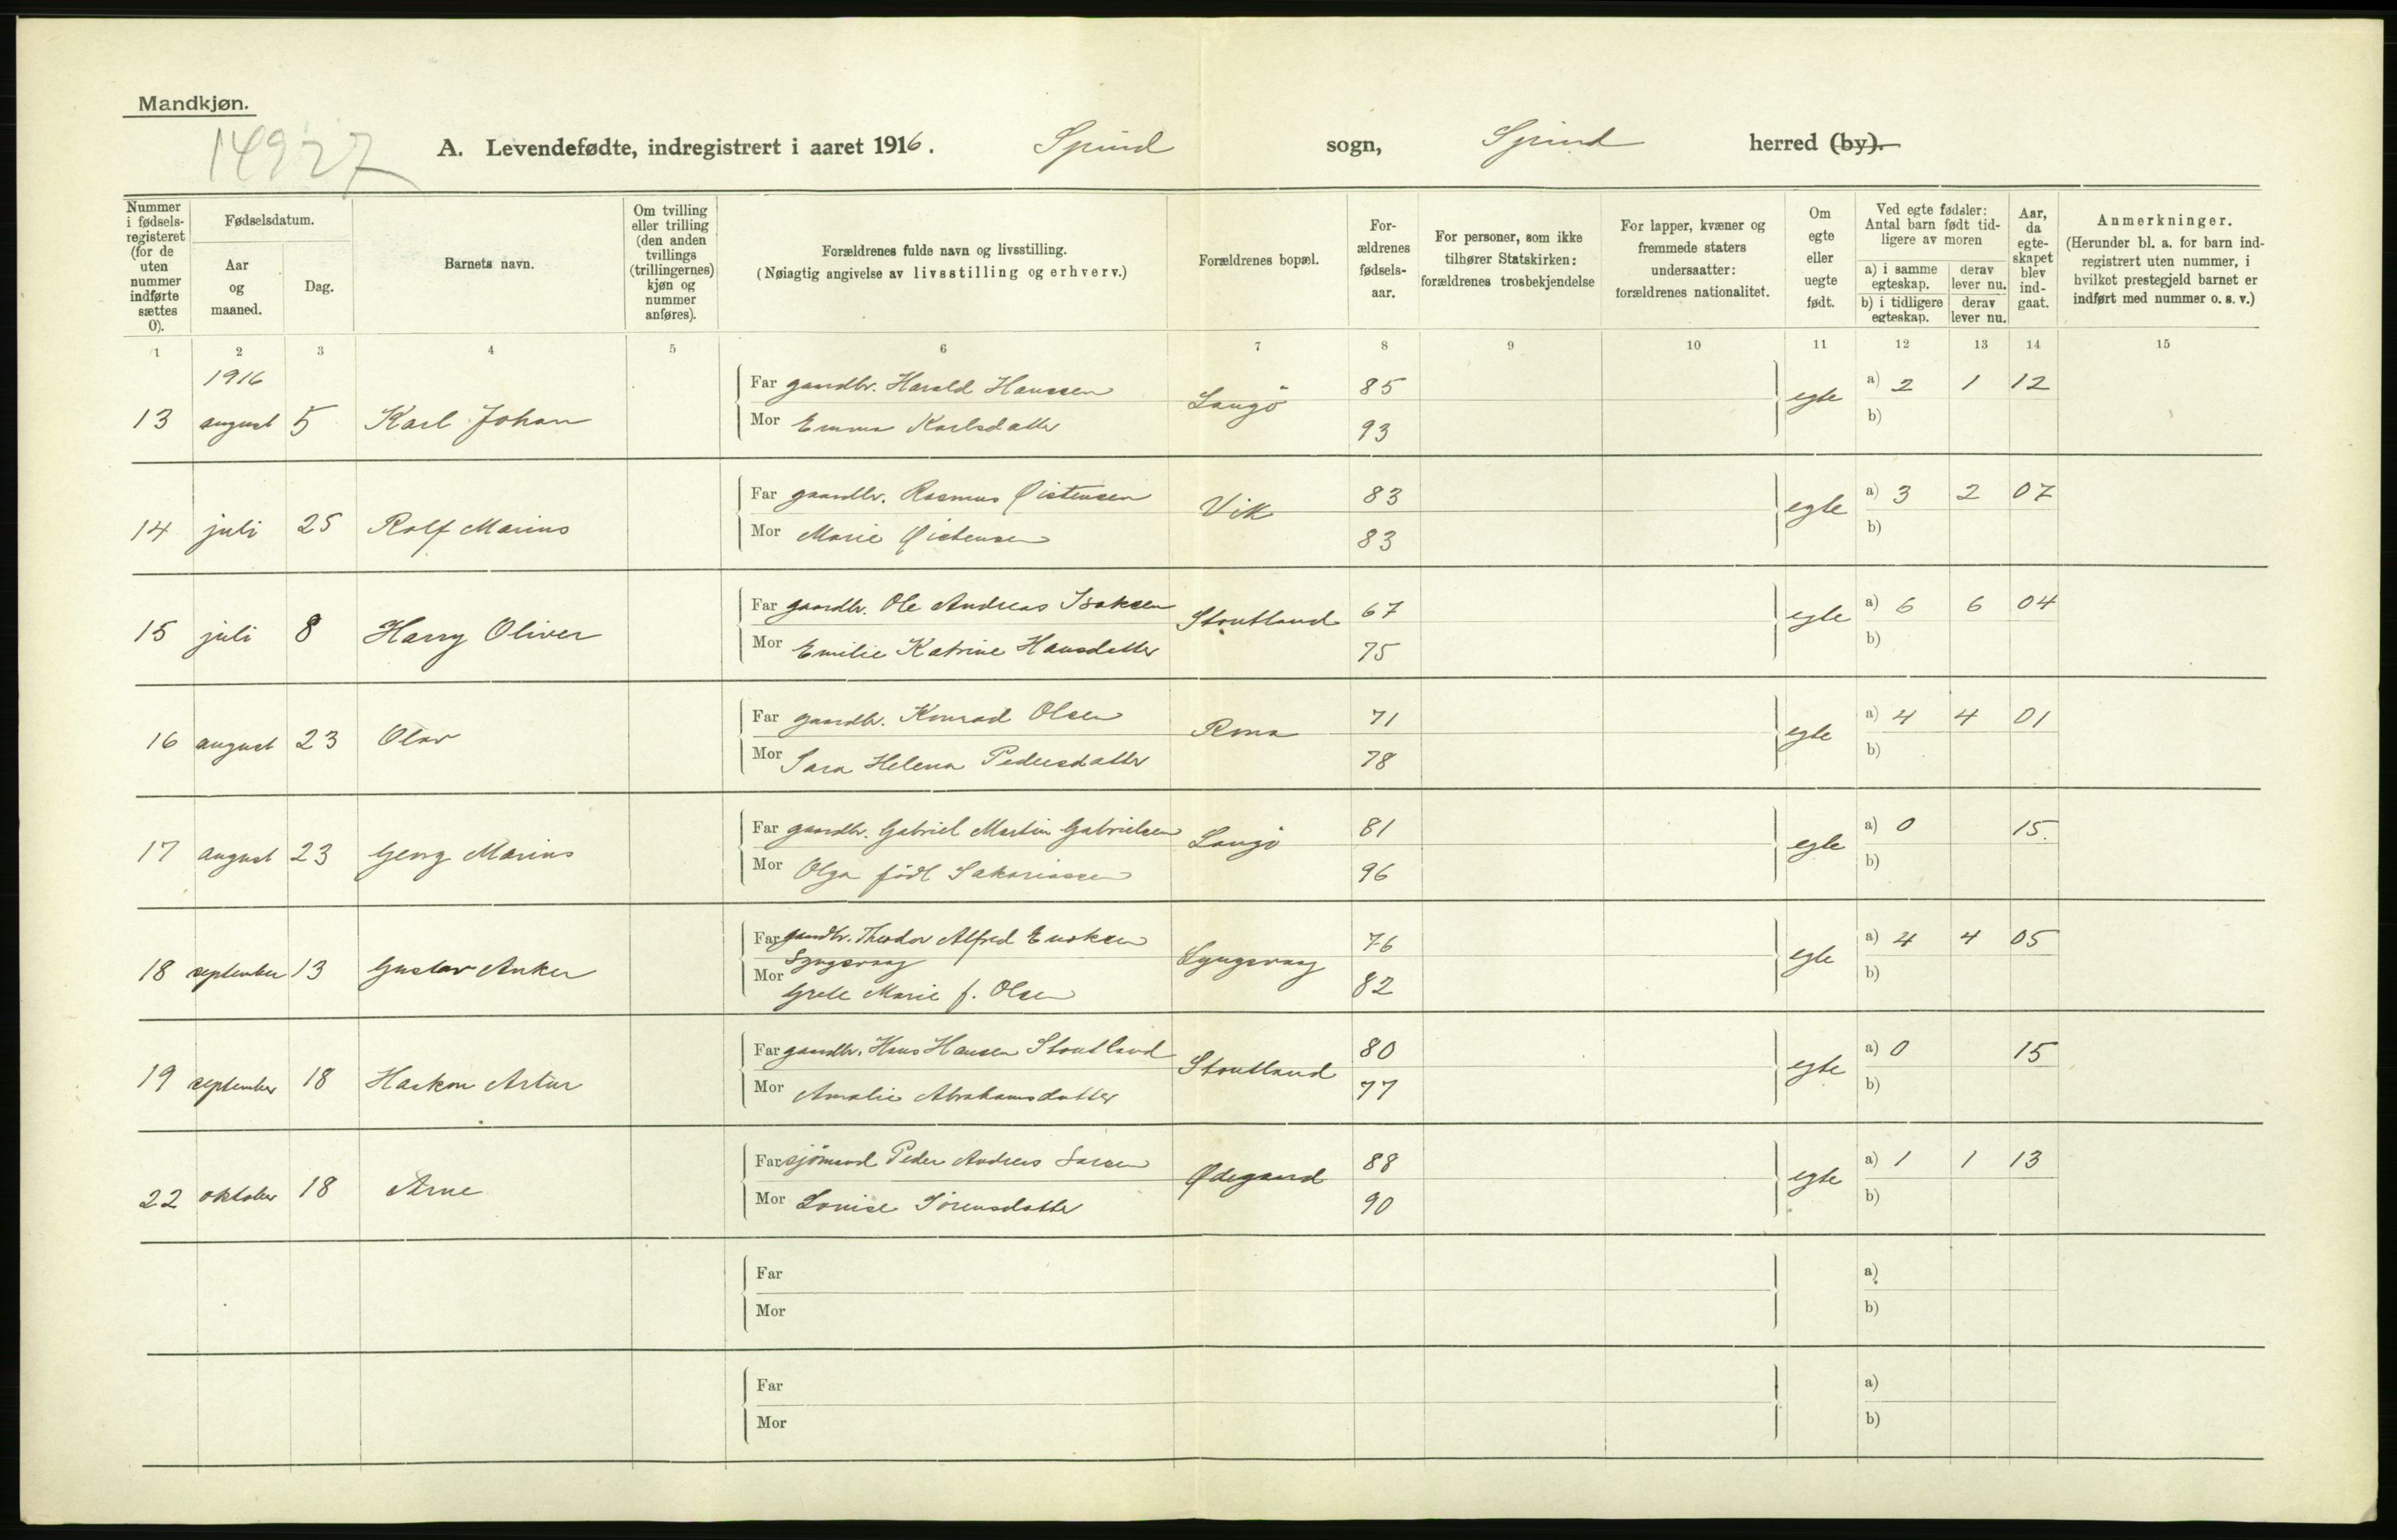 Mandkjøn.
14927
A. Levendefødte, indregistrert i aaret 1916. Spind sogn, Spind herred (by).
Nummer i fødsels-registeret (for de uten nummer indførte sættes 0).
Fødselsdatum.
Aar og maaned.
Dag.
Barnets navn.
Om tvilling eller trilling (den anden tvillings (trillingernes) kjøn og nummer anføres).
Forældrenes fulde navn og livsstilling.
(Nøiagtig angivelse av livsstilling og erhverv.)
Forældrenes bopæl.
For-ældrenes fødsels-aar.
For personer, som ikke tilhører Statskirken: forældrenes trosbekjendelse
For lapper, kvæner og fremmede staters undersaatter: forældrenes nationalitet.
Om egte eller uegte født.
Ved egte fødsler: Antal barn født tid-ligere av moren
a) i samme egteskap.
derav lever nu.
b) i tidligere egteskap.
derav lever nu.
Aar, da egte-skapet blev ind-gaat.
Anmerkninger.
(Herunder bl. a. for barn ind-registrert uten nummer, i hvilket prestegjeld barnet er indført med nummer o. s. v.)
1 2 3 4 5 6 7 8 9 10 11 12 13 14 15
1916
Far gaardbr. Harald Hanssen 85 a) 2 1 12
13 august 5 Karl Johan Langö egte
Mor Emma Karlsdatter 93 b)
Far gaardbr. Rasmus Øistensen 83 a) 3 2 07
14 juli 25 Rolf Marius Vik egte
Mor Marie Øistensen 83 b)
Far gaardbr. Ole Andreas Isaksen 67 a) 6 6 04
15 juli 8 Harry Oliver Stoutland egte
Mor Emilie Katrine Hansdatter 75 b)
Far gaardbr. Konrad Olsen 71 a) 4 4 01
16 august 23 Olav Rona egte
Mor Sara Helena Pedersdatter 78 b)
Far gaardbr. Gabriel Martin Gabrielsen 81 a) 0 15.
17 august 23 Georg Marius Langö egte
Mor Olga födt Sakariassen 96 b)
Far gaardbr. Theodor Alfred Enoksen 76 a) 4 4 05
Lyngsvaag
18 september 13 Gustav Anker Lyngsvaag egte
Mor Grete Marie f. Olsen 82 b)
Far gaardbr. Hans Hansen Stoutland 80 a) 0 15
19 september 18 Haakon Artur Stoutland egte
Mor Amalie Abrahamsdatter 77 b)
Far sjömand Peder Andreas Larsen 88 a) 1 1 13
22 oktober 18 Arne Ødegaard egte
Mor Lovise Sörensdatter 90 b)
Far a)
Mor b)
Far a)
Mor b)